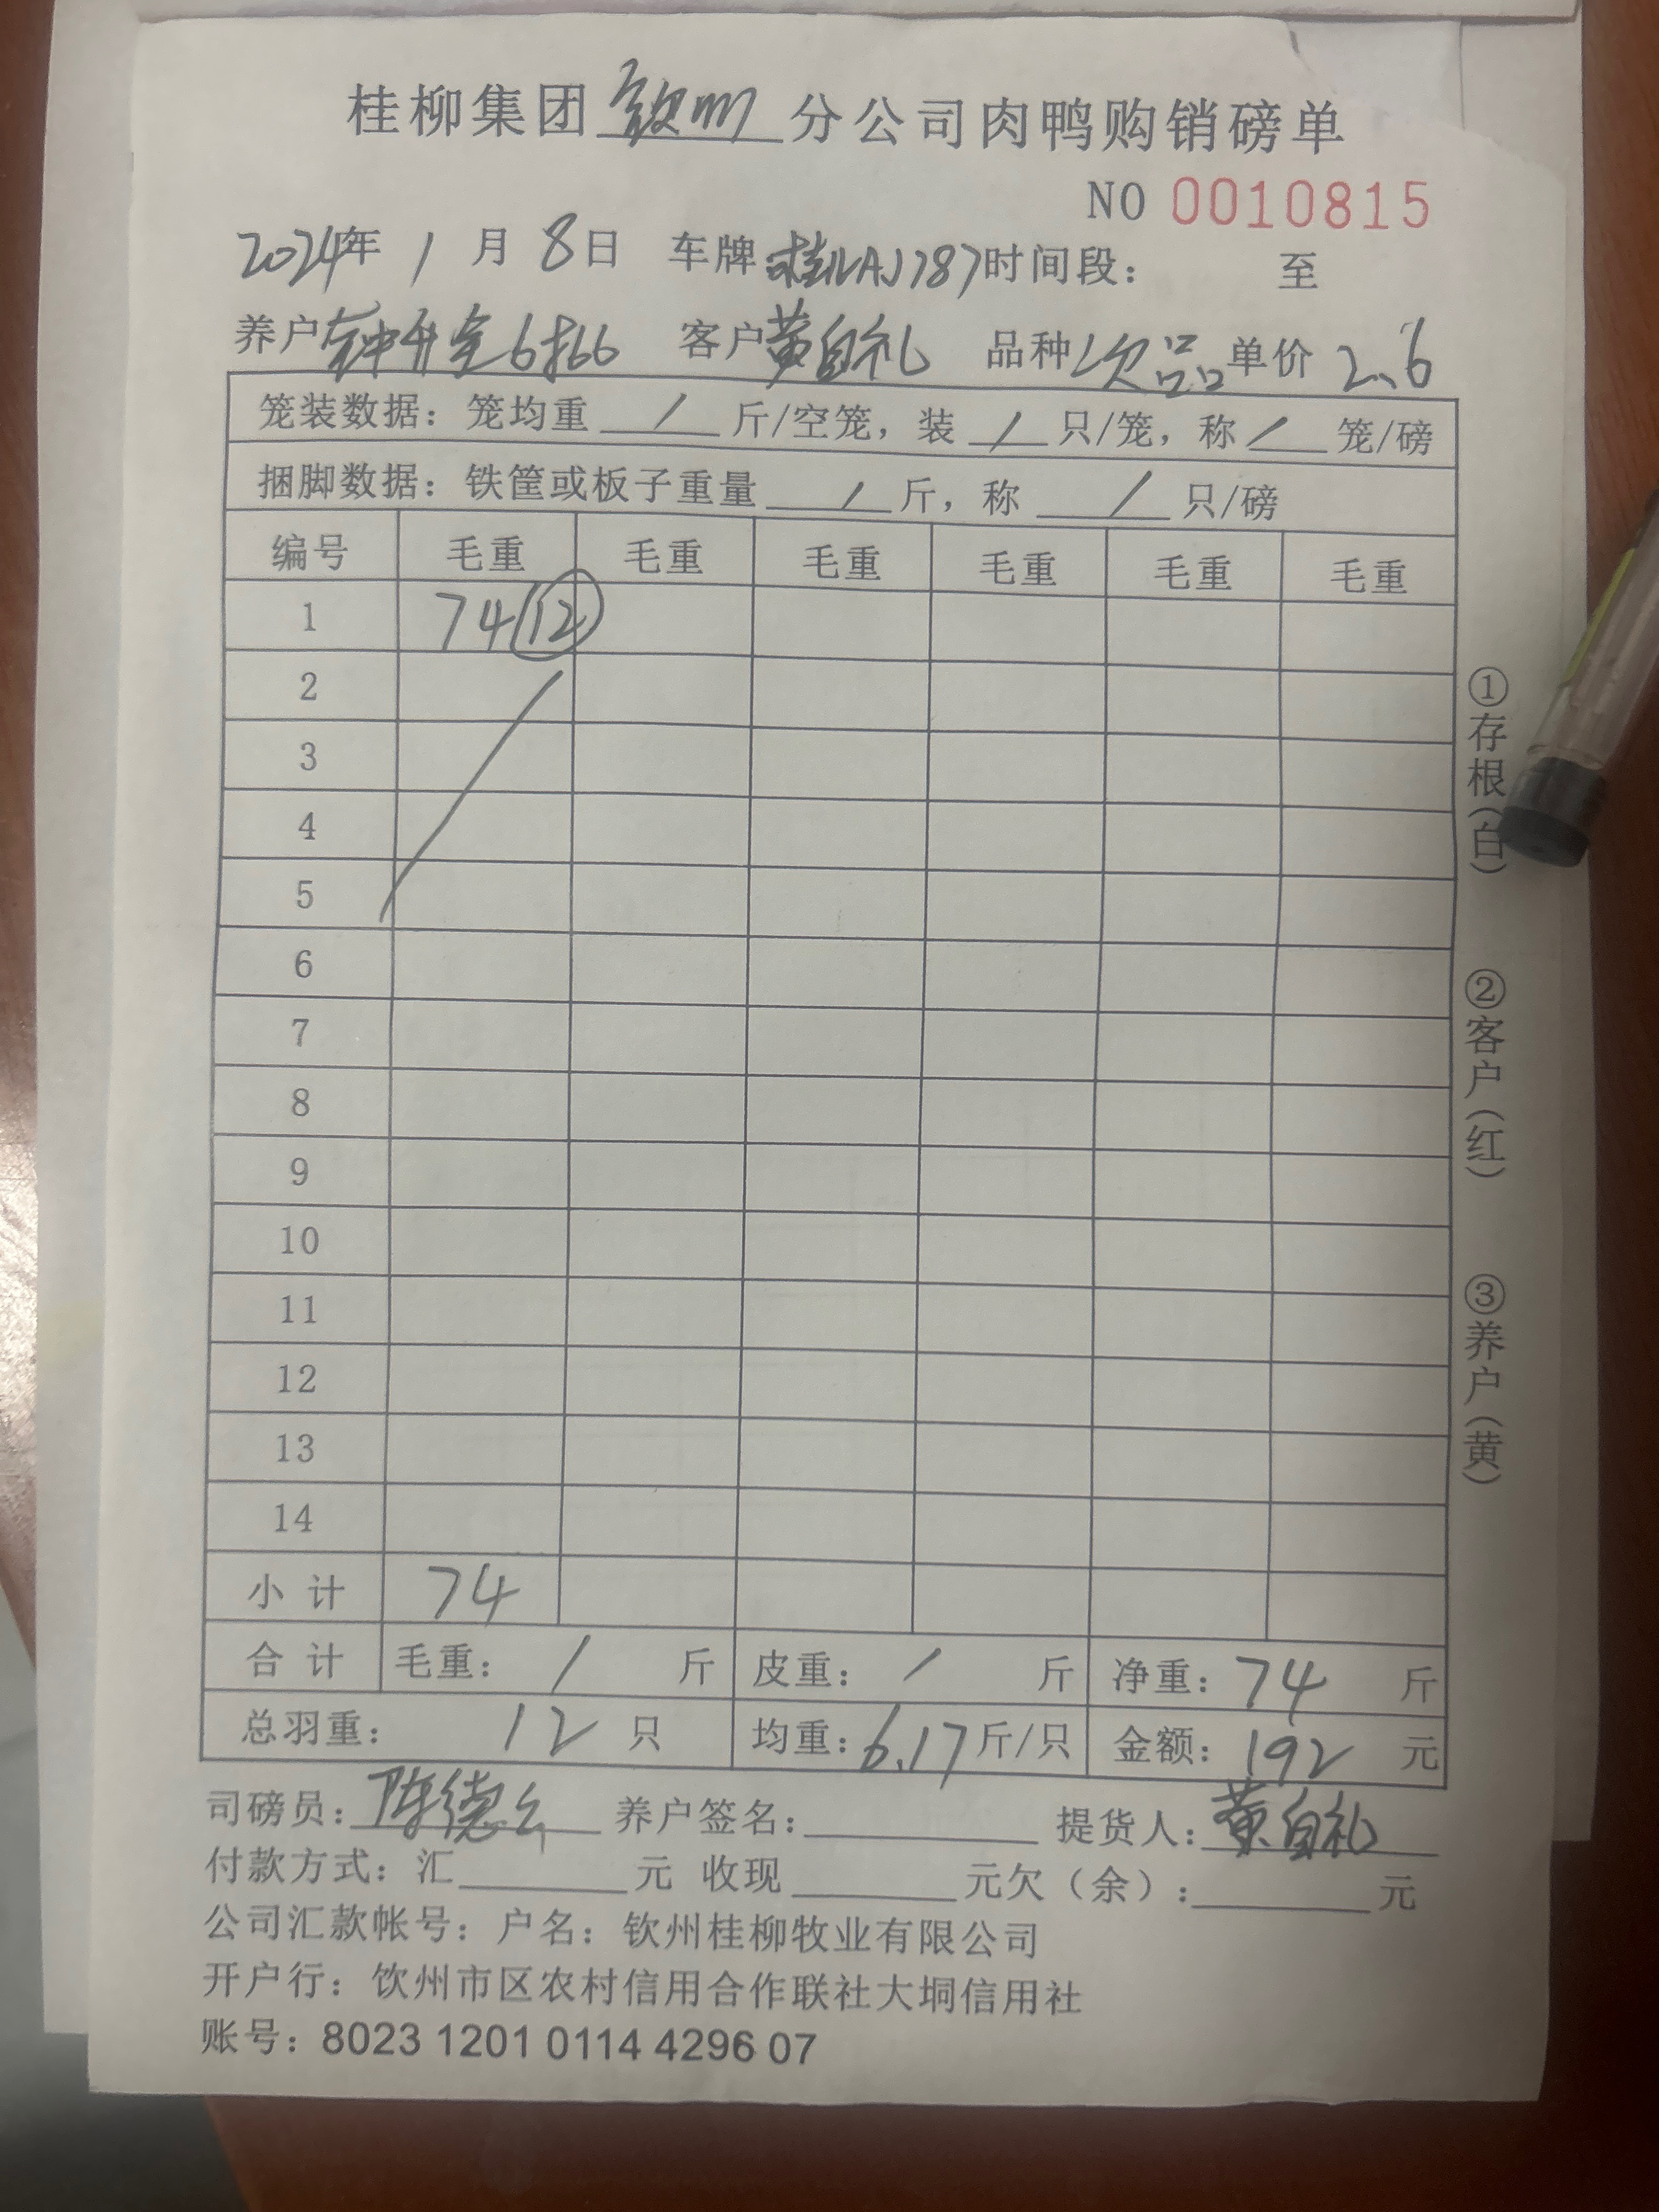 桂柳集团钦州分公司肉鸭购销磅单
NO 0010815
2024年 1 月 8日 车牌 时间段： 至
养户 客户黄自礼 品种欠品 单价 2.6
笼装数据：笼均重 / 斤/空笼，装 / 只/笼，称 / 笼/磅
捆脚数据：铁筐或板子重量 / 斤，称 / 只/磅
编号 毛重 毛重 毛重 毛重 毛重 毛重
1 74 12
2
3
4
5
6
7
8
9
10
11
12
13
14
小计 74
合计 毛重： / 斤 皮重： / 斤 净重：74 斤
总羽重： 12 只 均重：6.17斤/只 金额：192 元
司磅员：陈德 养户签名： 提货人：黄自礼
付款方式：汇 元 收现 元欠（余）： 元
公司汇款帐号：户名：钦州桂柳牧业有限公司
开户行：饮州市区农村信用合作联社大垌信用社
账号：8023 1201 0114 4296 07
①存根（白）
②客户（红）
③养户（黄）